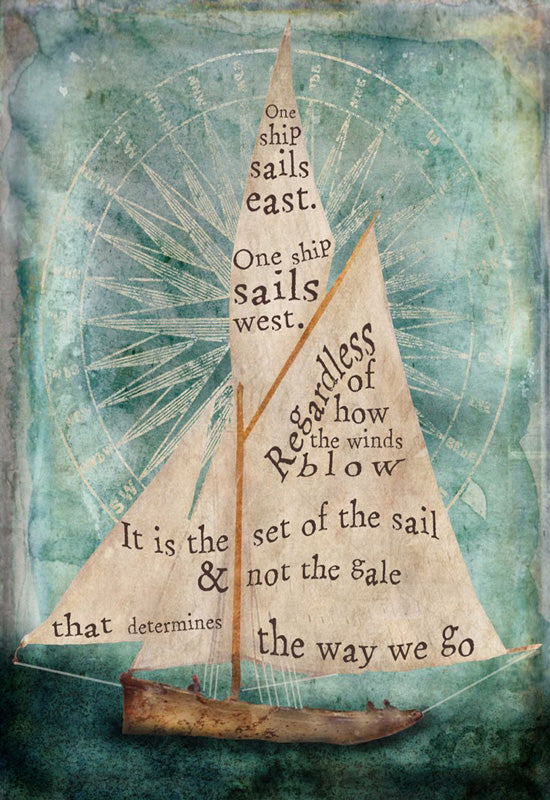 One
ship
sails
east.
One ship
sails
west.
Regardless
of
how
the winds
blow
It is the set of the sail
& not the gale
that determines the way we go